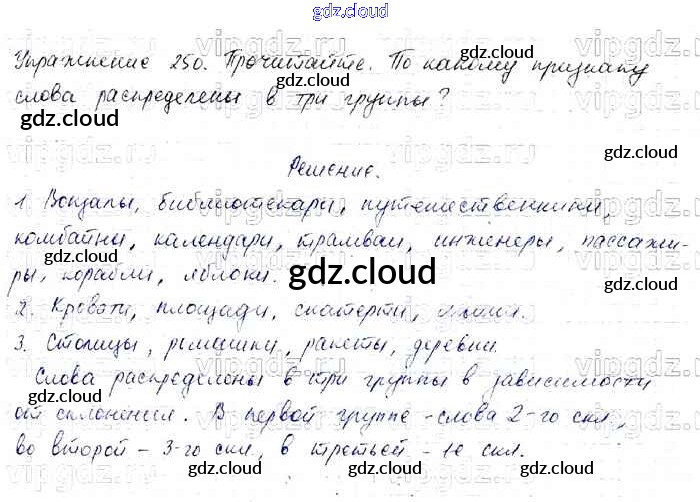 gdz.cloud
Упражнение 250. Прочитайте. По какому признаку
слова распределены в три группы?
Решение.
1. Вокзалы, библиотекари, путешественники,
комбайны, календари, трамваи, инженеры, пассажи-
ры, корабли, яблоки.
2. Кровати, площади, скатерти,
3. Столицы, ромашки, ракеты, деревни.
Слова распределены в три группы в зависимости
от склонения. В первой группе - слова 2-го скл,
во второй - 3-го скл, в третьей - 1е скл.
gdz.cloud
gdz.cloud
gdz.cloud
gdz.cloud
gdz.cloud
gdz.cloud
gdz.cloud
gdz.cloud
gdz.cloud
gdz.cloud
gdz.cloud
vipgdz.ru